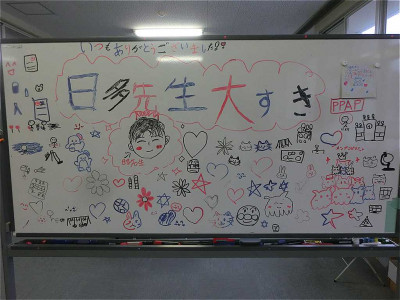 いつもありがとうございました!!
日多先生大すき
PPAP